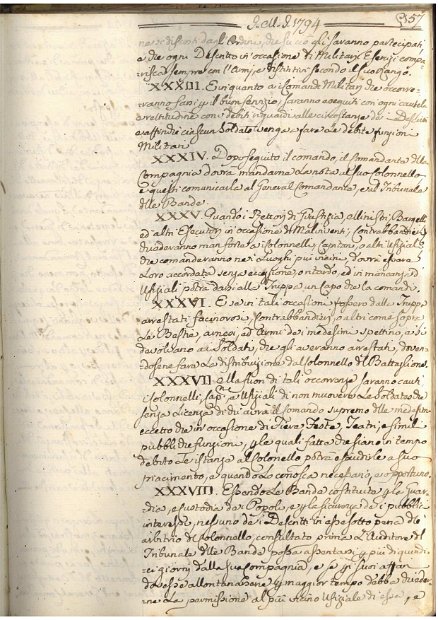 A. d. 1794 357
dall'Ordine, che su ciò gli saranno partecipati
e che ogni Descritto in occasione di Militari Esercizj compa-
risca sempre con l'Armi, e distintivi secondo il suo rango.
XXXIII. E in quanto ai comandi Militari che occorre-
ranno farsi il buon servizio, saranno eseguiti con cautela
e rettitudine con i debiti riguardi alle circostanze dei Descritti
ciascun Soldato venga a fare le debite funzioni
Militari
XXXIV. Dopo seguito il comando, il Comandante della
Compagnia dovrà mandarne la nota al suo Colonnello,
e questi comunicarle al General Comandante, e al Tribunale
delle Bande.
XXXV. Quando i Rettori di Giustizia, o Ministri, Bargelli
ed altri Esecutori in occasione di Malviventi, Contrabbandieri
domanderanno man forte ai Colonnelli, Capitani, o altri Uffiziali
che comanderanno nei Luoghi più vicini, dovrà essere
loro accordata senza eccezione, o ritardo, ed in mancanza di
Uffiziali potrà darsi alle Truppe un Capo che la comandi.
XXXVI. E se in tali occasioni fossero dalle Truppe
arrestati facinorosi, contrabbandieri, o altri come sopra
Le Bestie, arnesi, ed Armi de' medesimi spettino, e si
devolvano ai Soldati, che gli averanno arrestati, doven-
dosene fare la distribuzione dal Colonnello di Battaglione.
XXXVII. Alla fuori di tali occorrenze saranno cauti
i Colonnelli, Cap.ni, e Uffiziali di non muovere i Soldati
senza licenza di chi averà il comando supremo delle medesime
eccetto che in occasione di Fiere, Feste, Teatri, e simili
pubbliche funzioni, per le quali fatta che siane in tempo
debito la istanza al Colonnello potrà esaudirle a suo
piacimento, e quando lo conosca necessario, e opportuno.
XXXVIII. Essendo le Bande costituite per la Guar-
dia, e custodia de' Popoli, e per la sicurezza de' pubblici
interessi, nessuno dei Descritti in esse sotto pena di
arbitrio di Colonnello, consultato prima l'Auditore del
Tribunale delle Bande possa assentarsi per più di quindi-
ci giorni dalla sua Compagnia, e se per suoi affari
dovesse allontanarsene per maggior tempo debba riceve-
ne la permissione al più vicino Uffiziale di essa, e